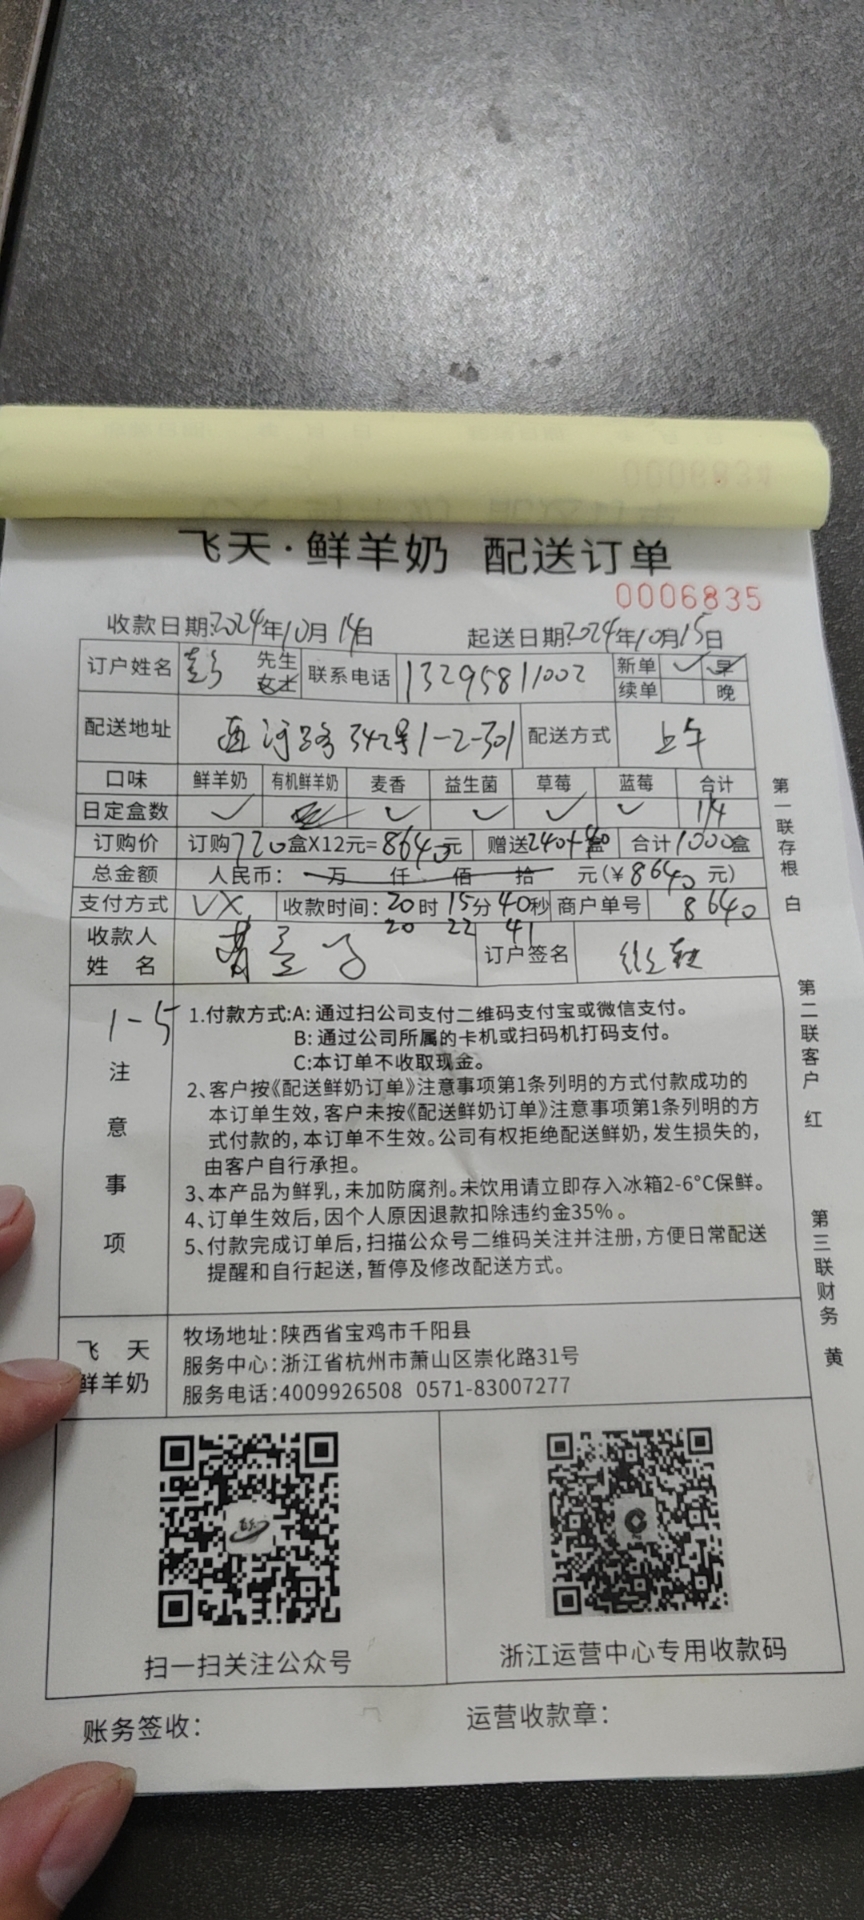 飞天·鲜羊奶 配送订单
0006835
收款日期:2024年10月14日 起送日期:2024年10月15日
订户姓名 彭 先生 女士 联系电话 13295811002 新单 早
续单 晚
配送地址 西河路342号1-2-301 配送方式 上午
口味 鲜羊奶 有机鲜羊奶 麦香 益生菌 草莓 蓝莓 合计
日定盒数 1/4
订购价 订购720盒X12元=8640元 赠送240+40盒 合计1000盒
总金额 人民币: 万 仟 佰 拾 元(¥8640元)
支付方式 VX 收款时间:20时15分40秒 商户单号 8640
20 22 41
收款人
姓 名
订户签名
1-5
注意事项
1.付款方式:A: 通过扫公司支付二维码支付宝或微信支付。
B: 通过公司所属的卡机或扫码机打码支付。
C:本订单不收取现金。
2、客户按《配送鲜奶订单》注意事项第1条列明的方式付款成功的
本订单生效,客户未按《配送鲜奶订单》注意事项第1条列明的方
式付款的,本订单不生效。公司有权拒绝配送鲜奶,发生损失的,
由客户自行承担。
3、本产品为鲜乳,未加防腐剂。未饮用请立即存入冰箱2-6°C保鲜。
4、订单生效后,因个人原因退款扣除违约金35%。
5、付款完成订单后,扫描公众号二维码关注并注册,方便日常配送
提醒和自行起送,暂停及修改配送方式。
飞 天
鲜羊奶
牧场地址:陕西省宝鸡市千阳县
服务中心:浙江省杭州市萧山区崇化路31号
服务电话:4009926508 0571-83007277
扫一扫关注公众号
浙江运营中心专用收款码
账务签收:
运营收款章:
第一联存根 白
第二联客户 红
第三联财务 黄